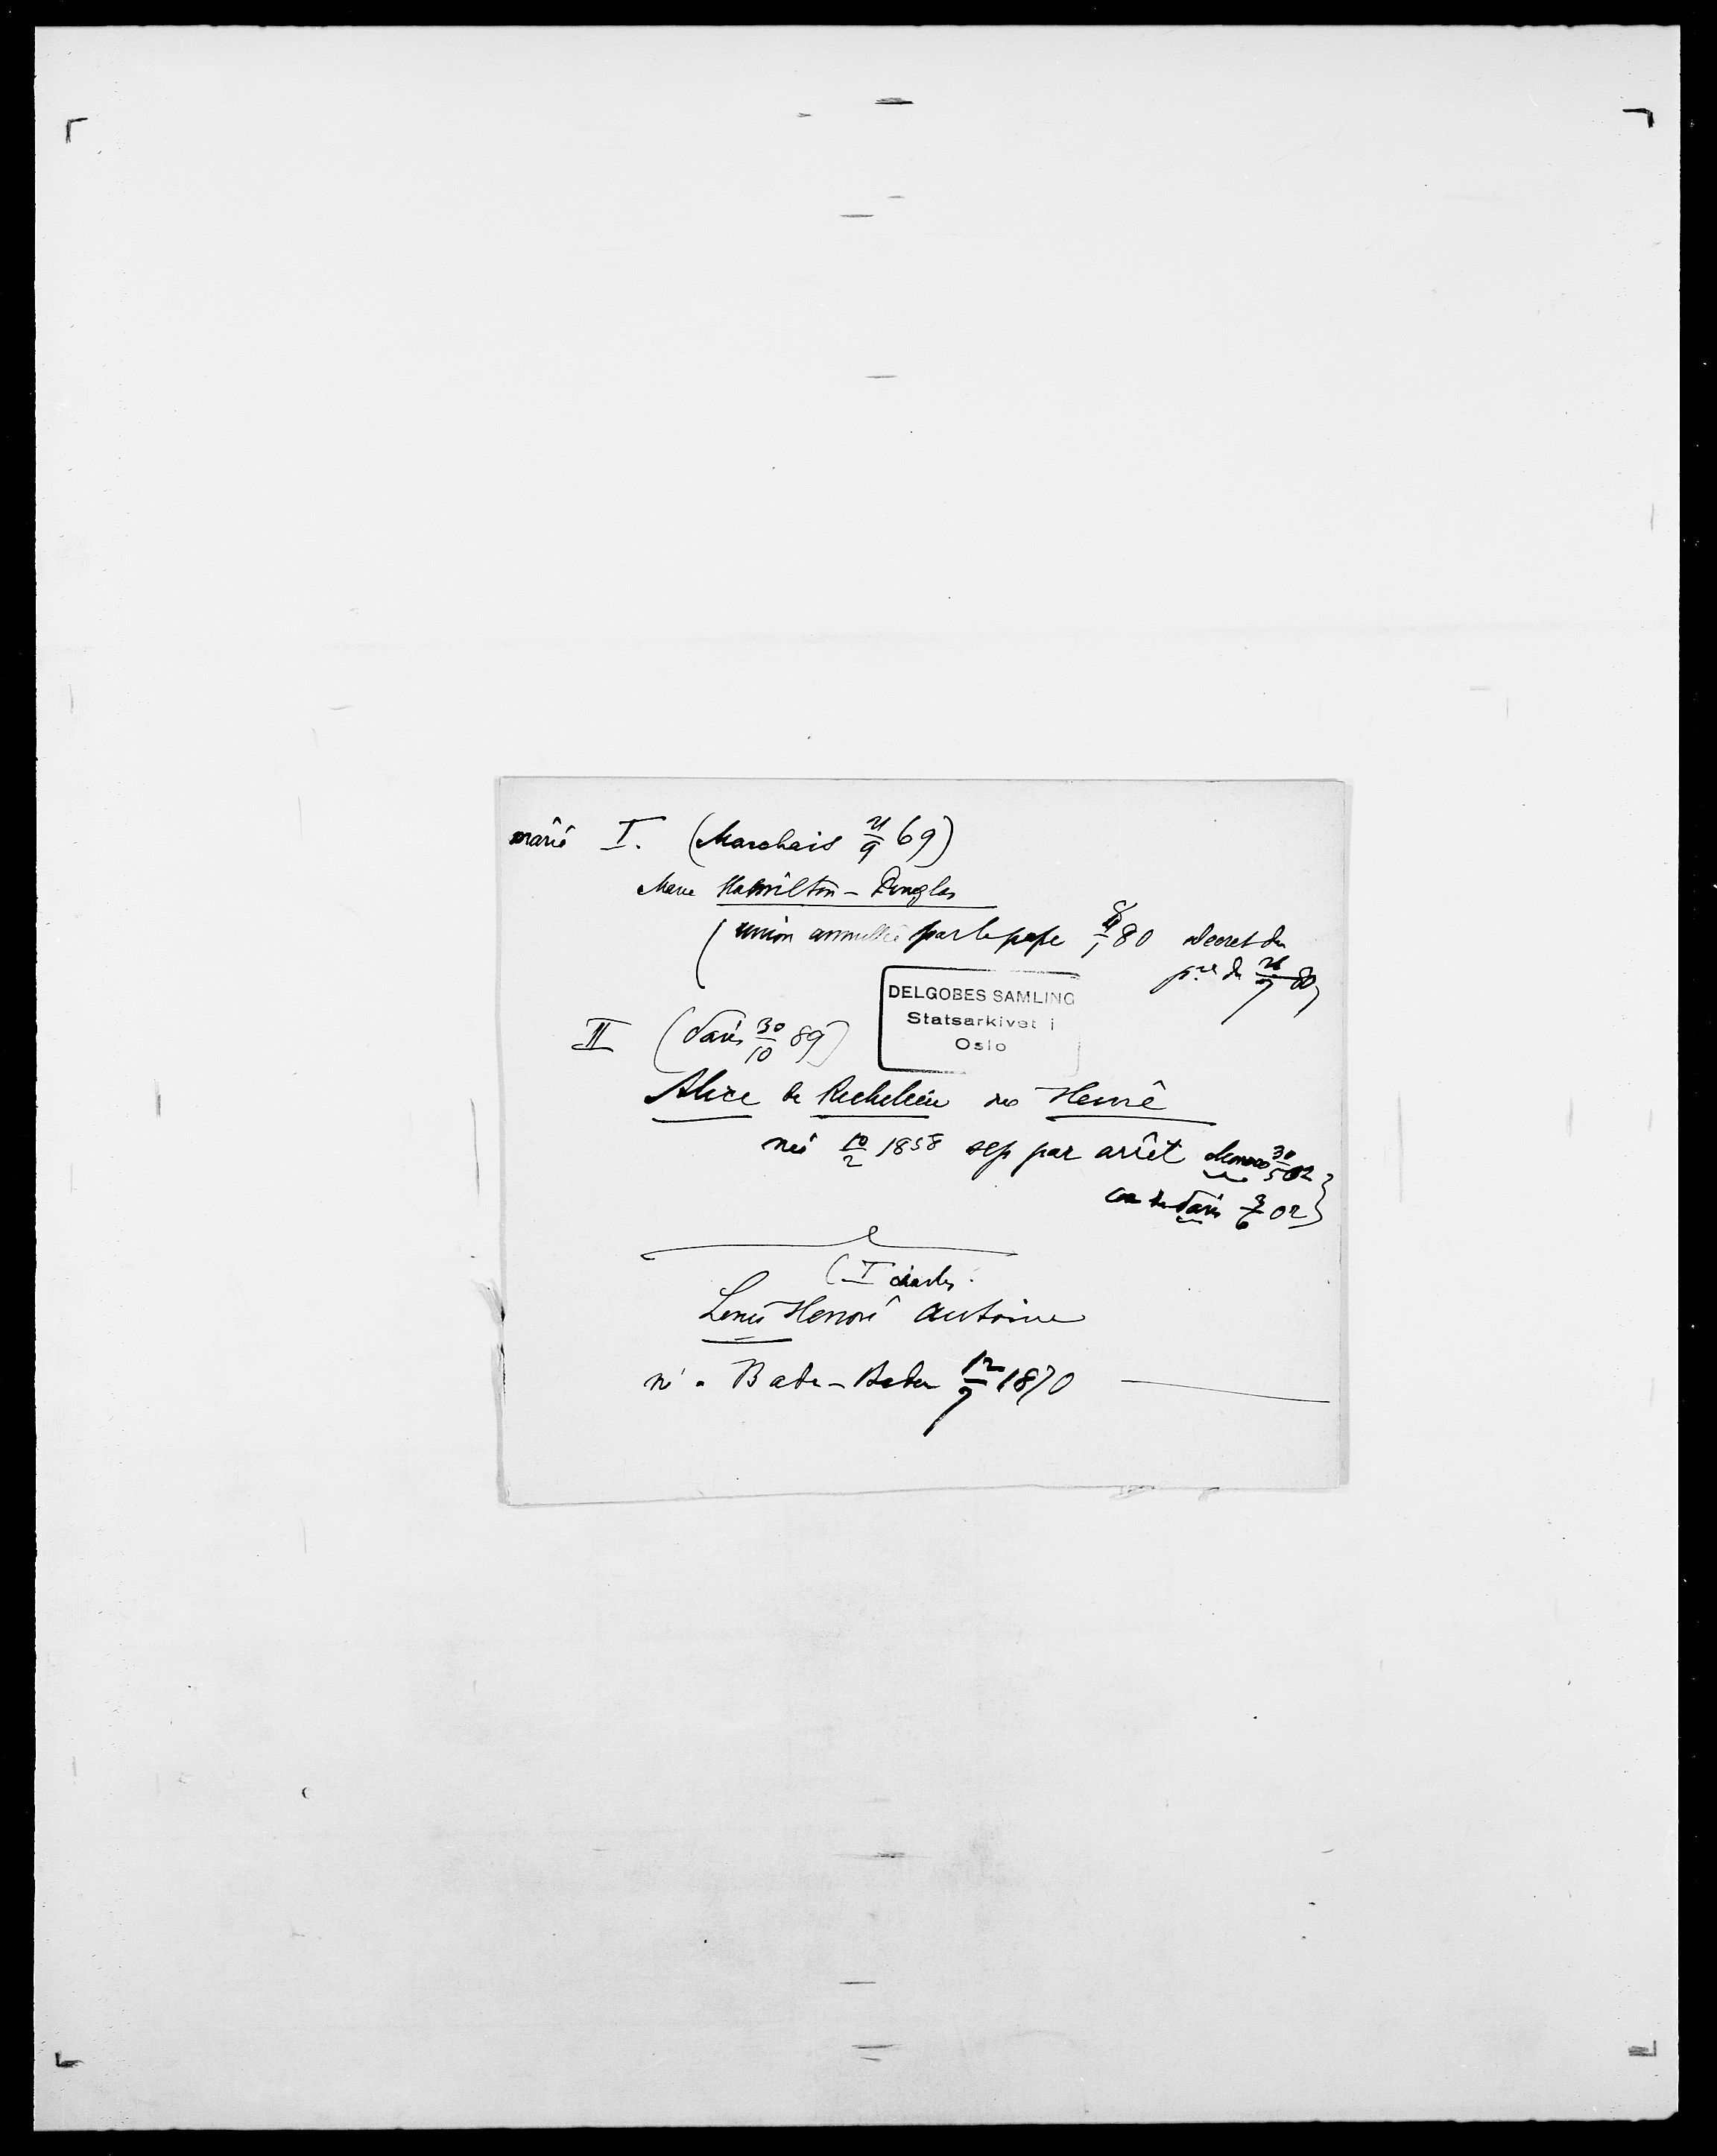 marié I. (Marchais 21/9 69)
Marie Hamilton - Douglas
(union annullée par le pape 80 decret du
pce du 28/7 80)
DELGOBES SAMLING
Statsarkivet i
Oslo
II (Paris 30/10 89)
Alice de Richelieu née Heine
née 10/2 1858 sep par arrêt Monaco 30/5 02}
de Paris 3/6 02}
(I Charles
Louis Honoré Antoine
né a Bade - Baden 12/7 1870